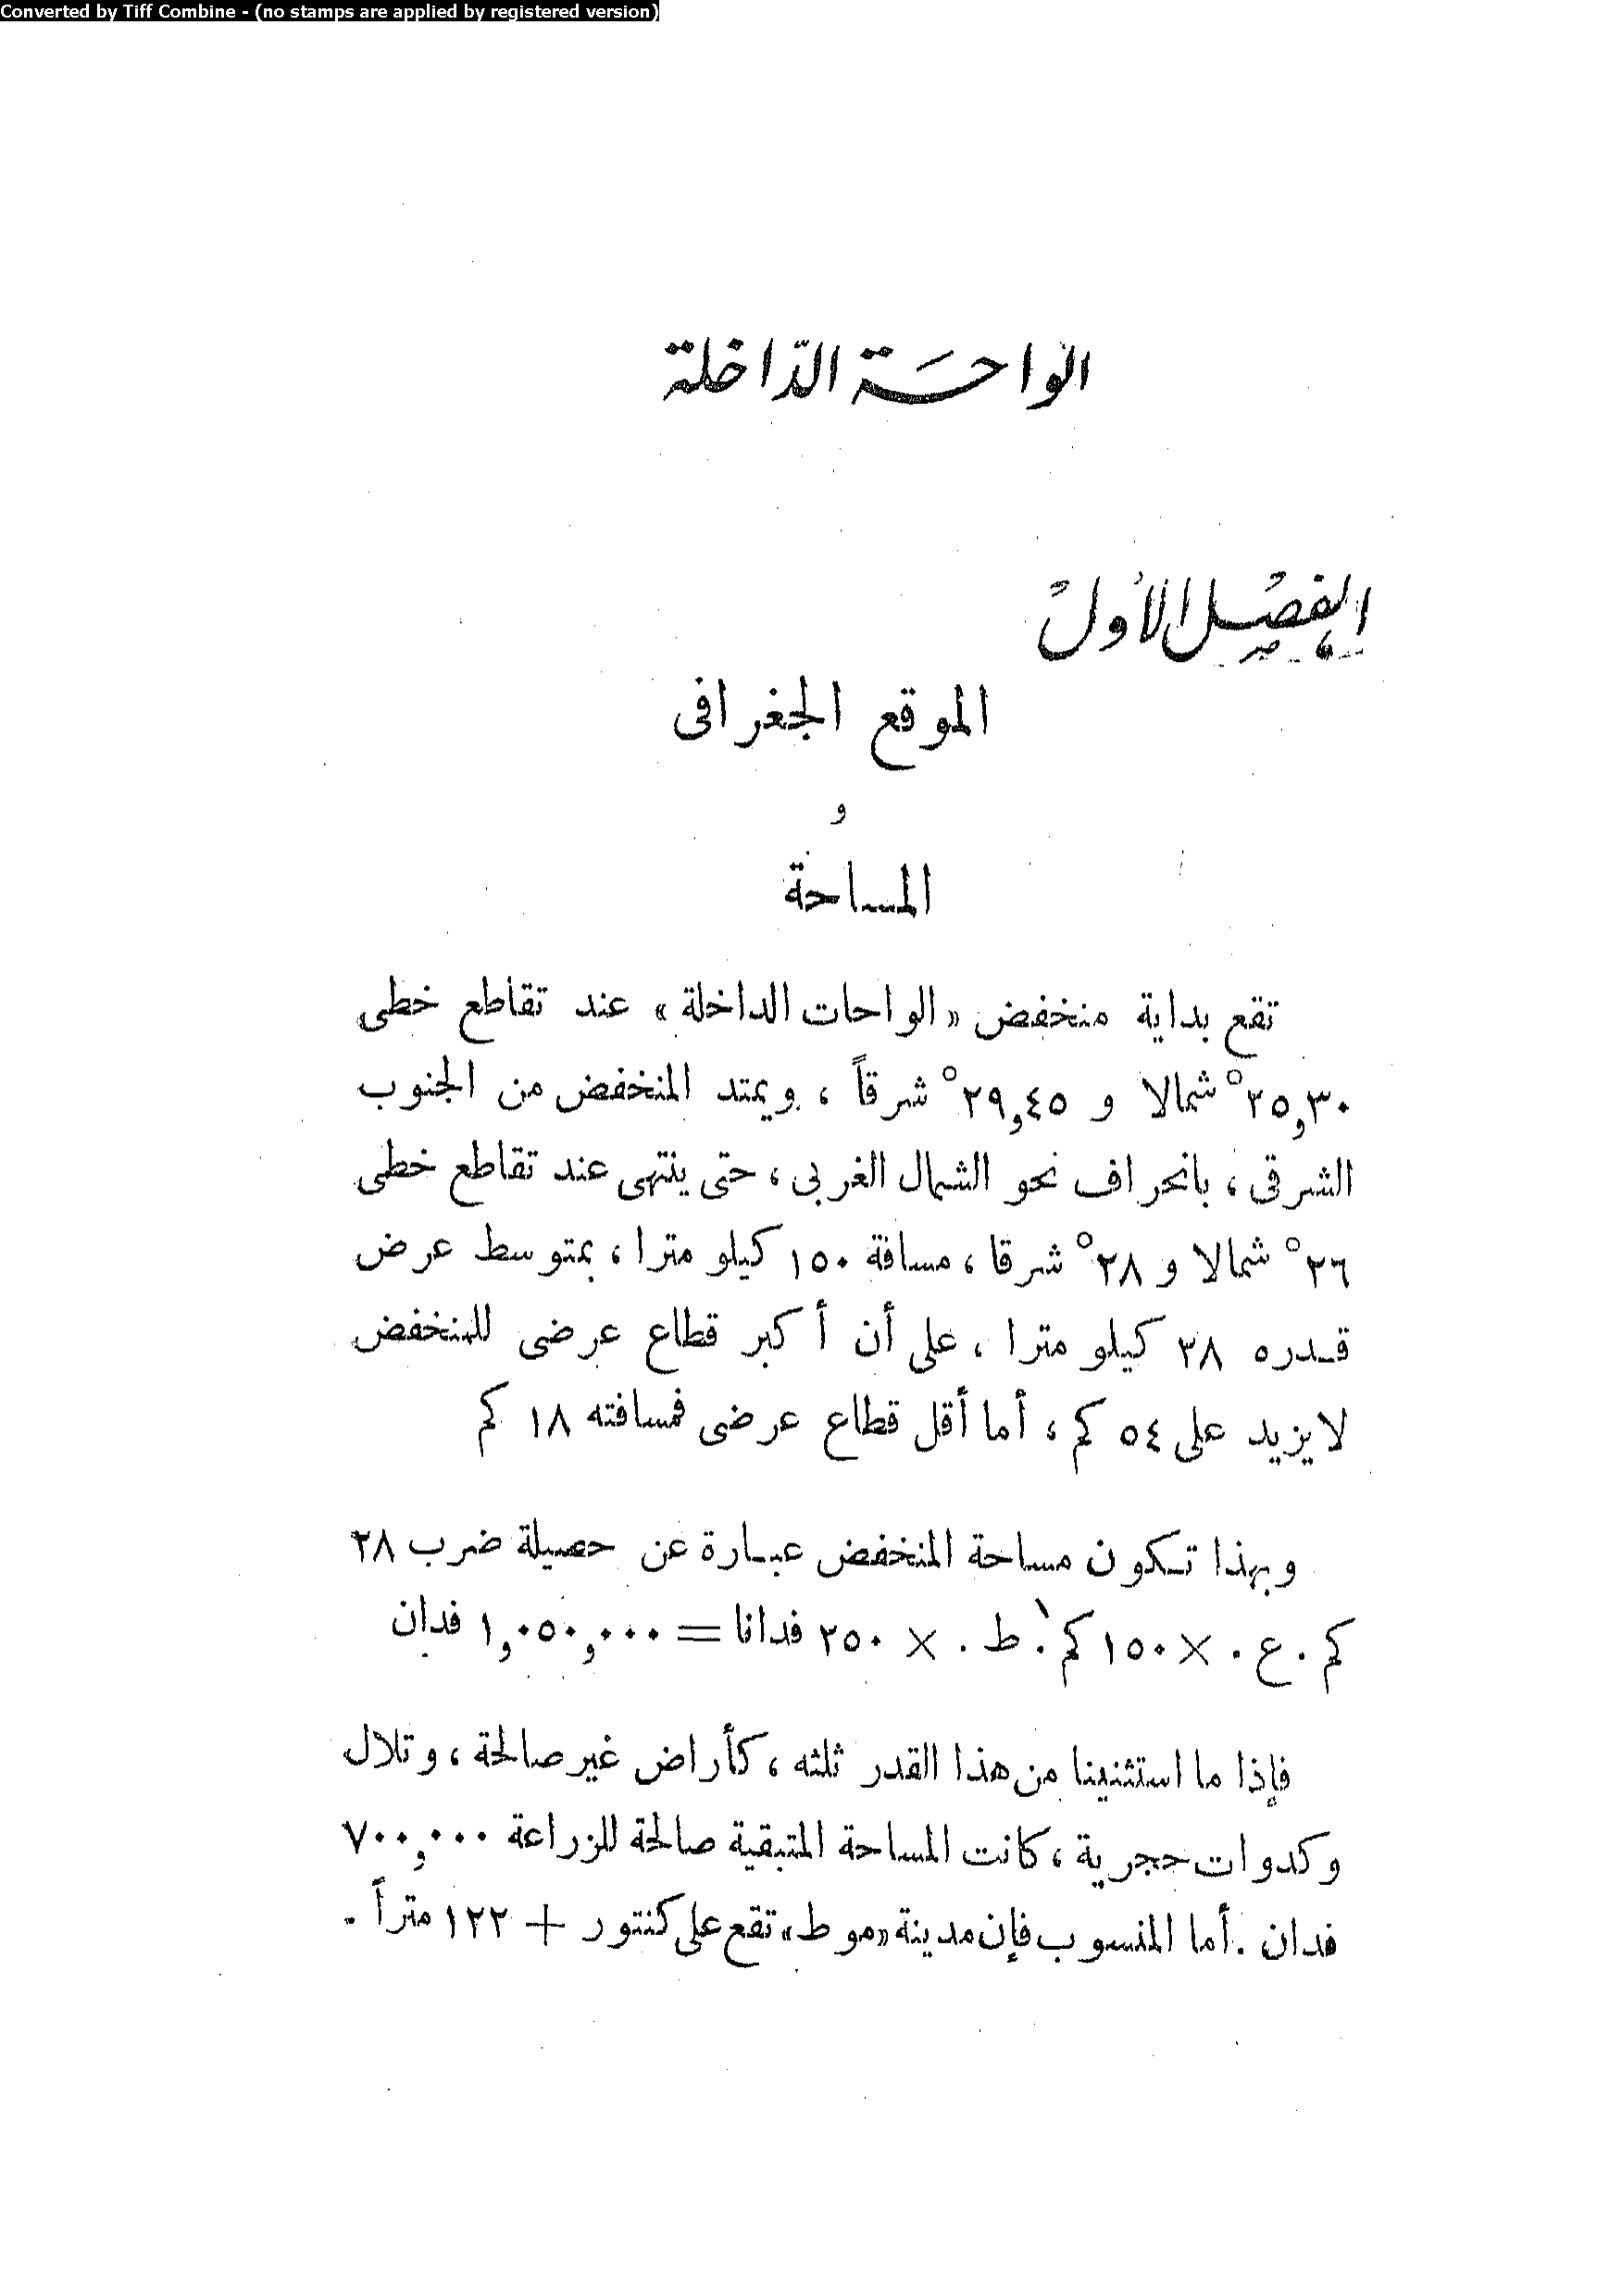 Converted by Tiff Combine - (no stamps are applied by registered version)
الواحَة الدّاخلة
الفصل الأول
الموقع الجغرافى
و
المساحة
تقع بداية منخفض «الواحات الداخلة» عند تقاطع خطى
٢٥,٣٠° شمالا و ٢٩,٤٥° شرقاً ، ويمتد المنخفض من الجنوب
الشرقى ، بانحراف نحو الشمال الغربى ، حتى ينتهى عند تقاطع خطى
٢٦° شمالا و ٢٨° شرقا ، مسافة ١٥٠ كيلو مترا ، بمتوسط عرض
قدره ٢٨ كيلو مترا ، على أن أكبر قطاع عرضى للمنخفض
لا يزيد على ٥٤ كم ، أما أقل قطاع عرضى فمسافته ١٨ كم
وبهذا تكون مساحة المنخفض عبارة عن حصيلة ضرب ٢٨
كم . ع . × ١٥٠ كم . ط . × ٢٥٠ فدانا = ١,٠٥٠,٠٠٠ فدان
فإذا ما استثنينا من هذا القدر ثلثه ، كأراض غير صالحة ، وتلال
وكدوات حجرية ، كانت المساحة المتبقية صالحة للزراعة ٧٠٠,٠٠٠
فدان . أما المنسوب فإن مدينة «موط» تقع على كنتور + ١٢٢ متراً .